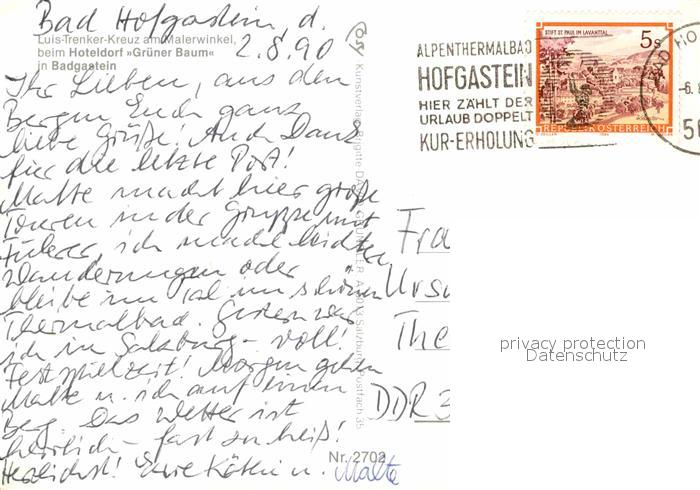 Bad Hofgastein, d.
2.8.90
Luis-Trenker-Kreuz am Malerwinkel,
beim Hoteldorf »Grüner Baum«
in Badgastein
Ihr Lieben, aus den
Bergen Euch ganz
liebe Grüße. Und Dank
für die letzte Post!
Malte macht hier große
Touren in der Gruppe mit
Führer, ich mache leichten
Wanderungen oder
bleibe im Tal im schönen
Thermalbad. Gestern war
ich in Salzburg - voll!
Festspielzeit! Morgen gehen
Malte u. ich auf einen
Berg. Das Wetter ist
herrlich - fast zu heiß!
Herzlichst! Eure Käthe u. Malte
Nr. 2702
Kunstverlag Brigitte
Salzburg, Postfach 35
ALPENTHERMALBAD
HOFGASTEIN
HIER ZÄHLT DER
URLAUB DOPPELT
KUR-ERHOLUNG
STIFT ST. PAUL IM LAVANTTAL
5s
REPUBLIK ÖSTERREICH
BAD HO
-6.8
56
Fra
Ursu
The
DDR 3
privacy protection
Datenschutz